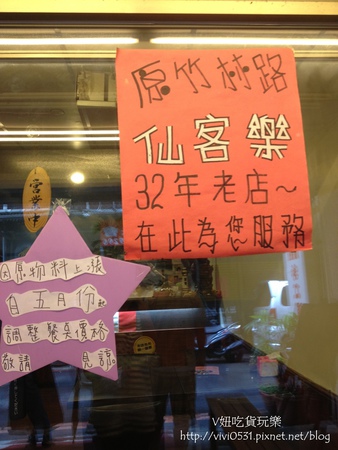 原竹林路
仙客樂
32年老店~
在此為您服務
營業中
因原物料上漲
自五月份起
調整餐點價格
敬請 見諒。
V妞吃貨玩樂
http://vivi0531.pixnet.net/blog